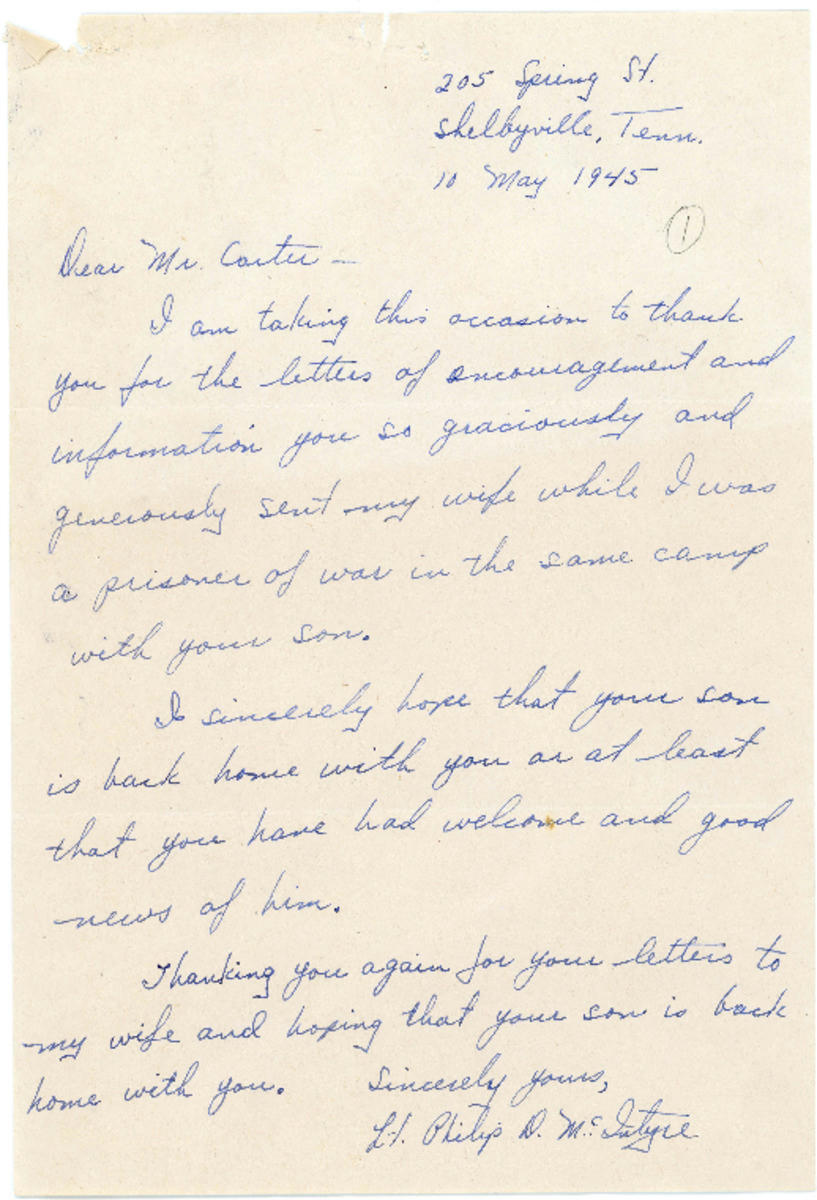 205 Spring St.
Shelbyville, Tenn.
10 May 1945
1
Dear Mr. Carter —
I am taking this occasion to thank
you for the letters of encouragement and
information you so graciously and
generously sent my wife while I was
a prisoner of war in the same camp
with your son.
I sincerely hope that your son
is back home with you or at least
that you have had welcome and good
news of him.
Thanking you again for your letters to
my wife and hoping that your son is back
home with you. Sincerely yours,
Lt. Philip D. McIntyre